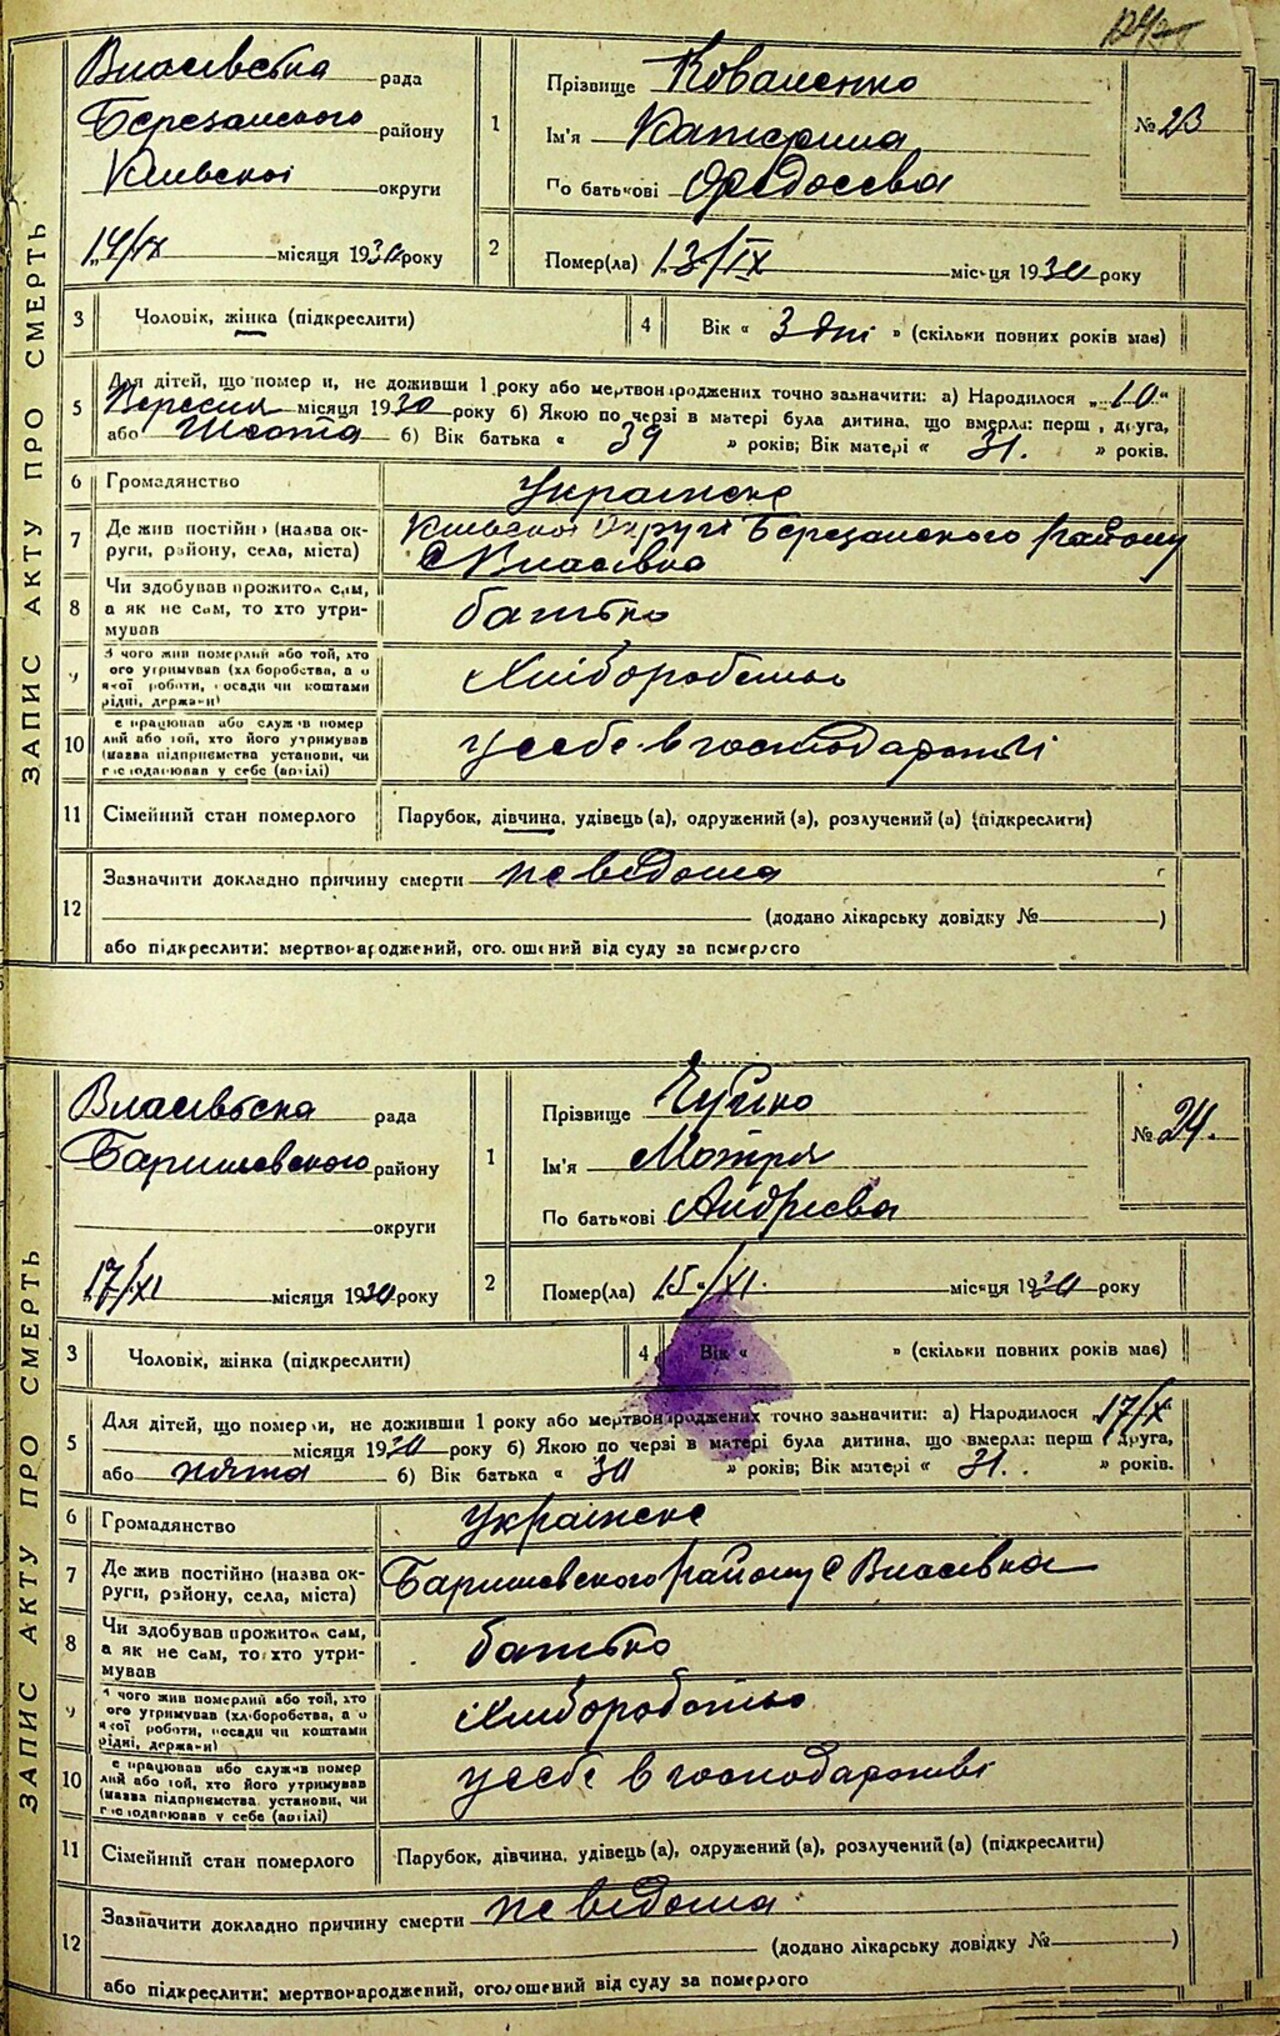 ЗАПИС АКТУ ПРО СМЕРТЬ
Власівська рада
Березанського району
Київскої округи
„14/ІХ місяця 1930 року
1 Прізвище Коваленко
Ім'я Катерина
По батькові Федосєва
№ 23
2 Помер(ла) „13/ІХ місяця 1930 року
3 Чоловік, жінка (підкреслити)
4 Вік « 3 дні » (скільки повних років має)
5 Для дітей, що померли, не доживши 1 року або мертвонароджених точно зазначити: а) Народилося „10“
Вересня місяця 1930 року б) Якою по черзі в матері була дитина, що вмерла: перша, друга,
або Шоста б) Вік батька « 39 » років; Вік матері « 31. » років.
6 Громадянство Українське
7 Де жив постійно (назва округи, району, села, міста) Київскої Округи Березанского району
с Власівка
8 Чи здобував прожиток сам,
а як не сам, то хто утримував
батько
9 З чого жив померлий або той, хто
його утримував (хліборобства, або
якої роботи, посади чи коштами
рідні, держави)
Хліборобством
10 Де працював або служив померлий або той, хто його утримував
(назва підприємства установи, чи
господарював у себе (артілі)
у себе в господарстві
11 Сімейний стан померлого Парубок, дівчина, удівець (а), одружений (а), розлучений (а) (підкреслити)
12 Зазначити докладно причину смерти невідома
(додано лікарську довідку № )
або підкреслити: мертвонароджений, оголошений від суду за померлого
ЗАПИС АКТУ ПРО СМЕРТЬ
Власівська рада
Баришевского району
округи
„17/ХІ місяця 1930 року
1 Прізвище Чуйко
Ім'я Мотря
По батькові Андрієва
№ 24.
2 Помер(ла) „15“/ХІ. місяця 1930 року
3 Чоловік, жінка (підкреслити)
4 Вік « » (скільки повних років має)
5 Для дітей, що померли, не доживши 1 року або мертвонароджених точно зазначити: а) Народилося „17/Х“
місяця 1930 року б) Якою по черзі в матері була дитина, що вмерла: перша, друга,
або пята б) Вік батька « 30 » років; Вік матері « 31. » років.
6 Громадянство Українське
7 Де жив постійно (назва округи, району, села, міста) Баришевского району с Власівка
8 Чи здобував прожиток сам,
а як не сам, то хто утримував
батько
9 З чого жив померлий або той, хто
його утримував (хліборобства, або
якої роботи, посади чи коштами
рідні, держави)
Хліборобством
10 Де працював або служив померлий або той, хто його утримував
(назва підприємства установи, чи
господарював у себе (артілі)
у себе в господарстві
11 Сімейний стан померлого Парубок, дівчина, удівець (а), одружений (а), розлучений (а) (підкреслити)
12 Зазначити докладно причину смерти невідома
(додано лікарську довідку № )
або підкреслити: мертвонароджений, оголошений від суду за померлого